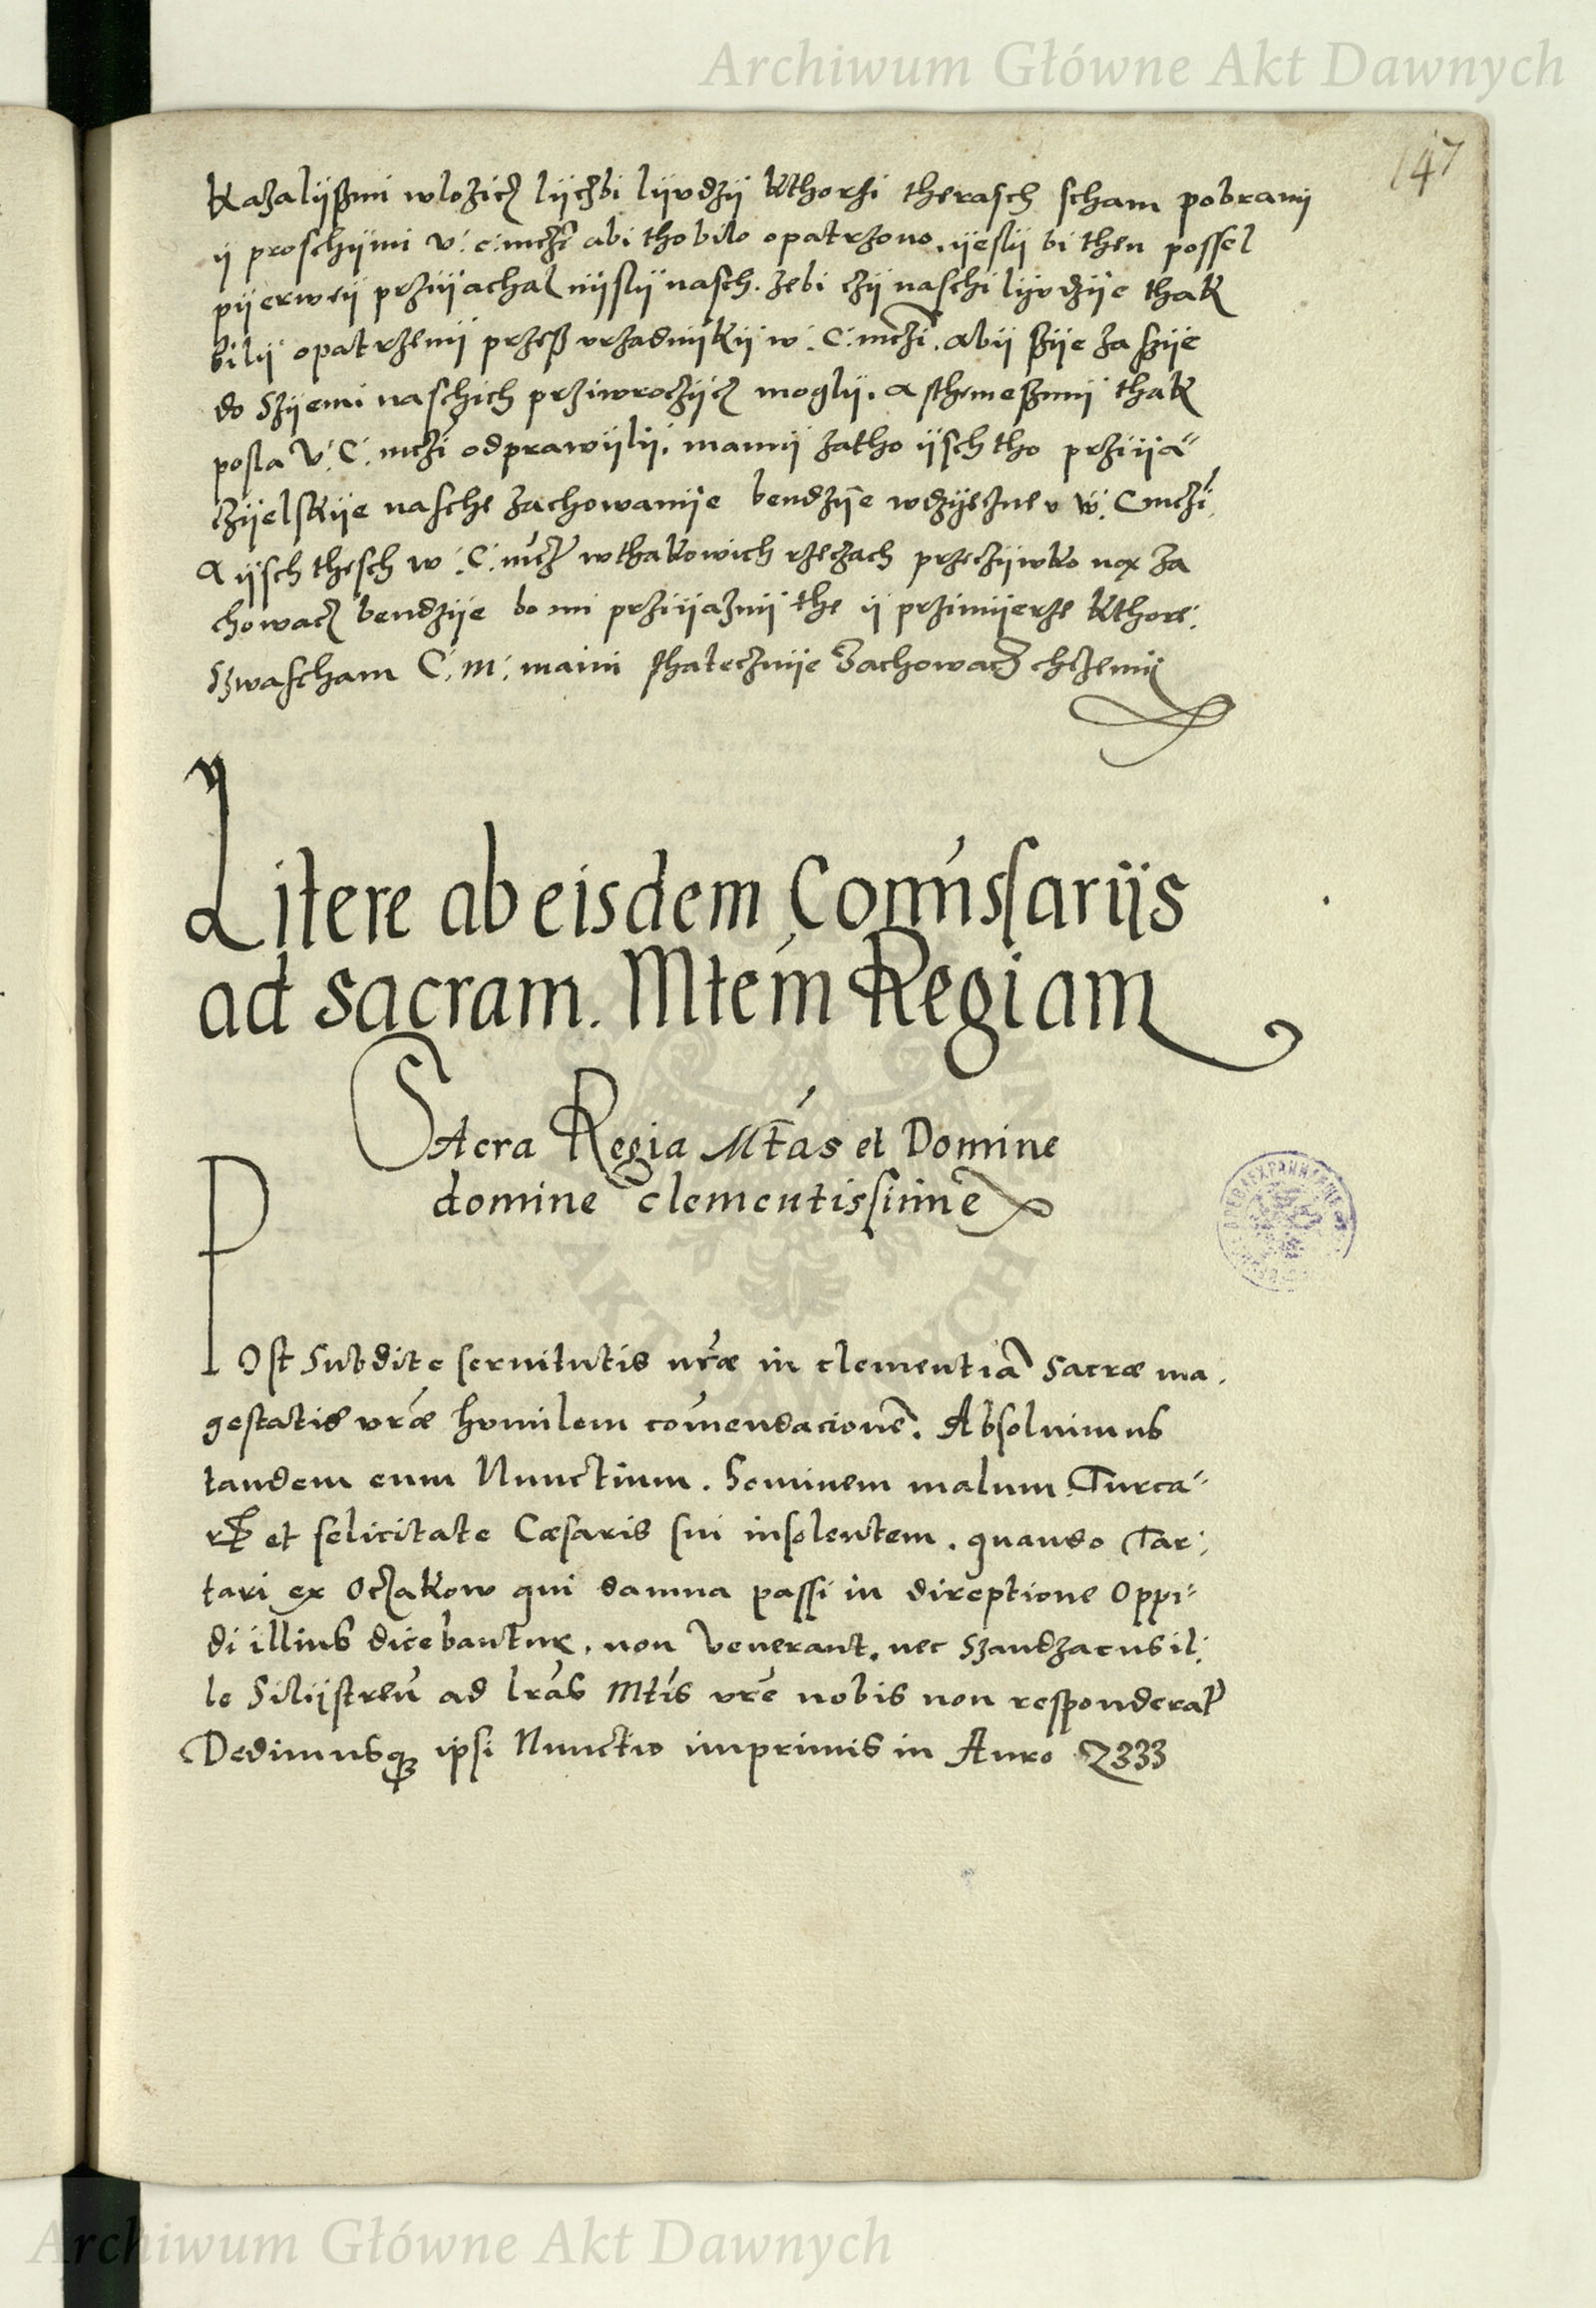 Archiwum Główne Akt Dawnych
147
Kazalijßmi wlozicz lijczbi lijvdzij kthorzi therasch scham pobranij
ij proschijmi v: c: mczi abi tho bilo opatrzono, ijeslij bi then possel
pijerweij przijachal nijslij nasch. zebi czij naschi lijvdzije thak
bilij opatrzenij przeß vrzadnijkij w: C: mczi. abij szije za szije
do Szijemi naschich prziwroczijcz moglij. a sthemeßmij thak
posla V: C: mczi odprawijlij. mamij zatho ijsch tho przijia=
czijelskije nasche zachowanije bendzije wdzijeczne v W: C mczi,
A ijsch thesch w: C: mcz w thakowich rzeczach przeczijwko nax za
chowacz bendzije bo mi przijaznij the ij przimijerze kthore:
Szwascham C: M: mami sthatecznije Zachowacz chczemij
Litere ab eisdem Comissarijs
ad sacram. Mtem Regiam
SAcra Regia Mtas et Domine
domine clementissime
POst Subdite seruitutis nræ in clementia Sacræ ma,
gestatis vræ humilem comendacione. Absoluimus
tandem eum Nunctium. Hominem malum Turca=
rꝝ et felicitate Cæsaris sui insolentem. quando Tar:
tari ex Oczakow qui damna passi in direptione Oppi=
di illius dicebantur. non Venerant. nec Szandzacus il:
le Silijstreń ad lras Mtis vre nobis non responderat
Dedimusqꝫ ipsi Nunctio imprimis in Auro 2333
Archiwum Główne Akt Dawnych